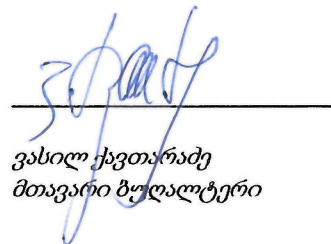 ვასილ ქავთარაძე
მთავარი ბუღალტერი